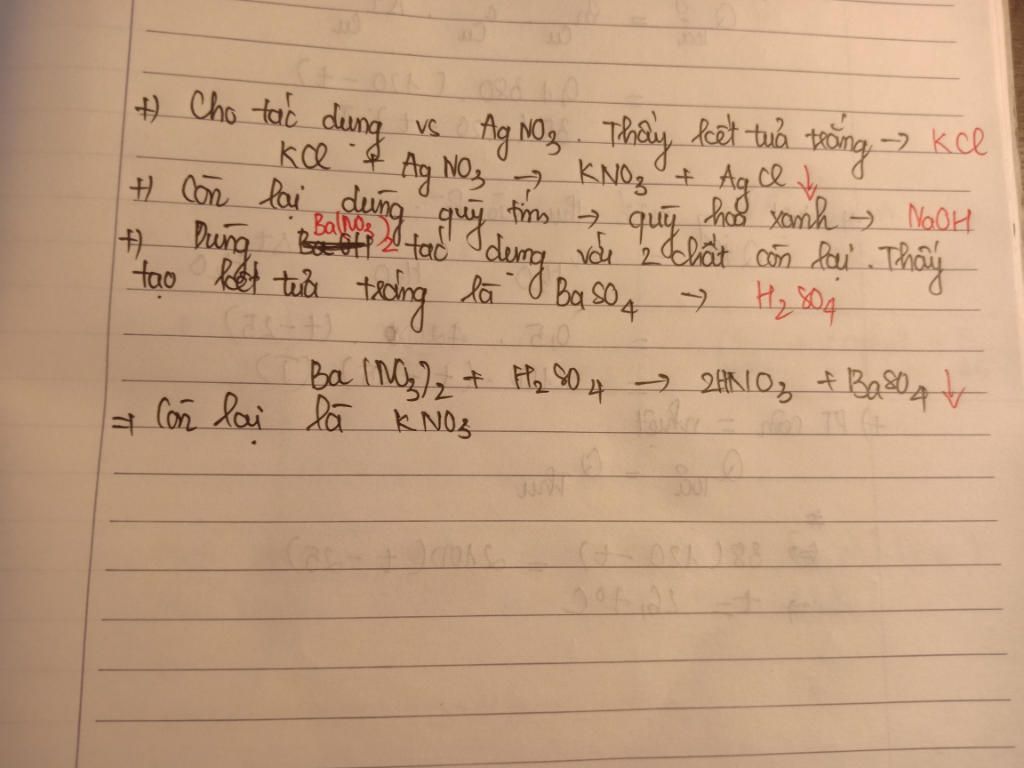 +) Cho tác dụng vs AgNO3. Thấy kết tủa trắng → KCl
KCl + AgNO3 → KNO3 + AgCl ↓
+) Còn lại dùng quỳ tím → quỳ hoá xanh → NaOH
+) Dùng Ba(NO3)2 tác dụng với 2 chất còn lại. Thấy
tạo kết tủa trắng là BaSO4 → H2SO4
Ba(NO3)2 + H2SO4 → 2HNO3 + BaSO4 ↓
⇒ Còn lại là KNO3